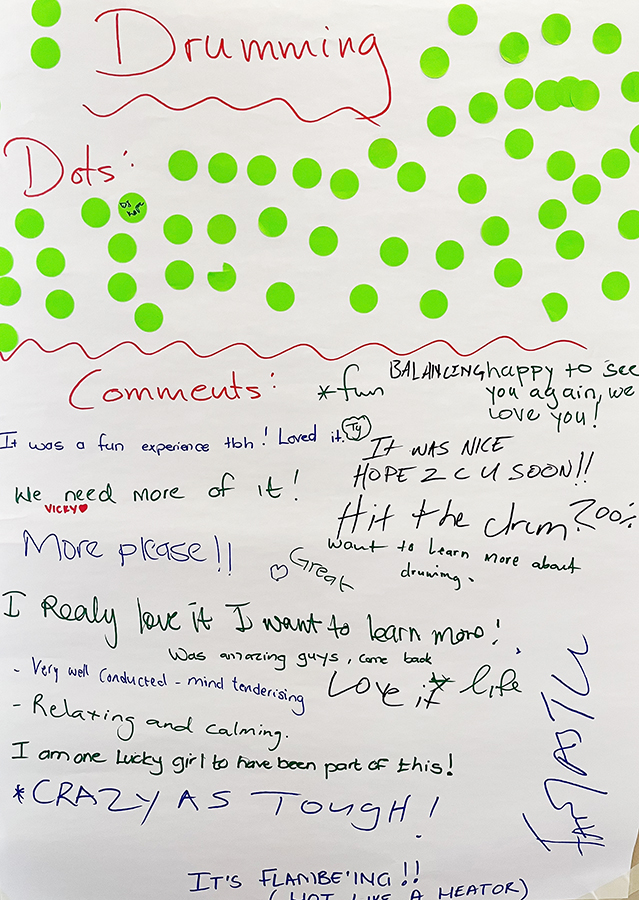 Drumming
Dots:
Comments:
*fun
BALANCING
happy to see
you again, we
love you!
It was a fun experience tbh! Loved it.
Ty
IT WAS NICE
HOPE 2 C U SOON!!
We need more of it!
VICKY
Hit the drum 200%
More please!!
want to learn more about
druming.
Great
I Realy love it I want to learn more!
Was amazing guys, come back
- Very well conducted - mind tenderising
Love it life
- Relaxing and calming.
I am one lucky girl to have been part of this!
*CRAZY AS TOUGH!
IT'S FLAMBE'ING!!
(HOT LIKE A HEATOR)